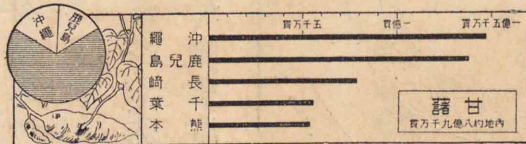 鹿兒島
沖繩
五千万貫
一億貫
一億五千万貫
沖繩
鹿兒島
長崎
千葉
熊本
甘藷
内地約八億九千万貫